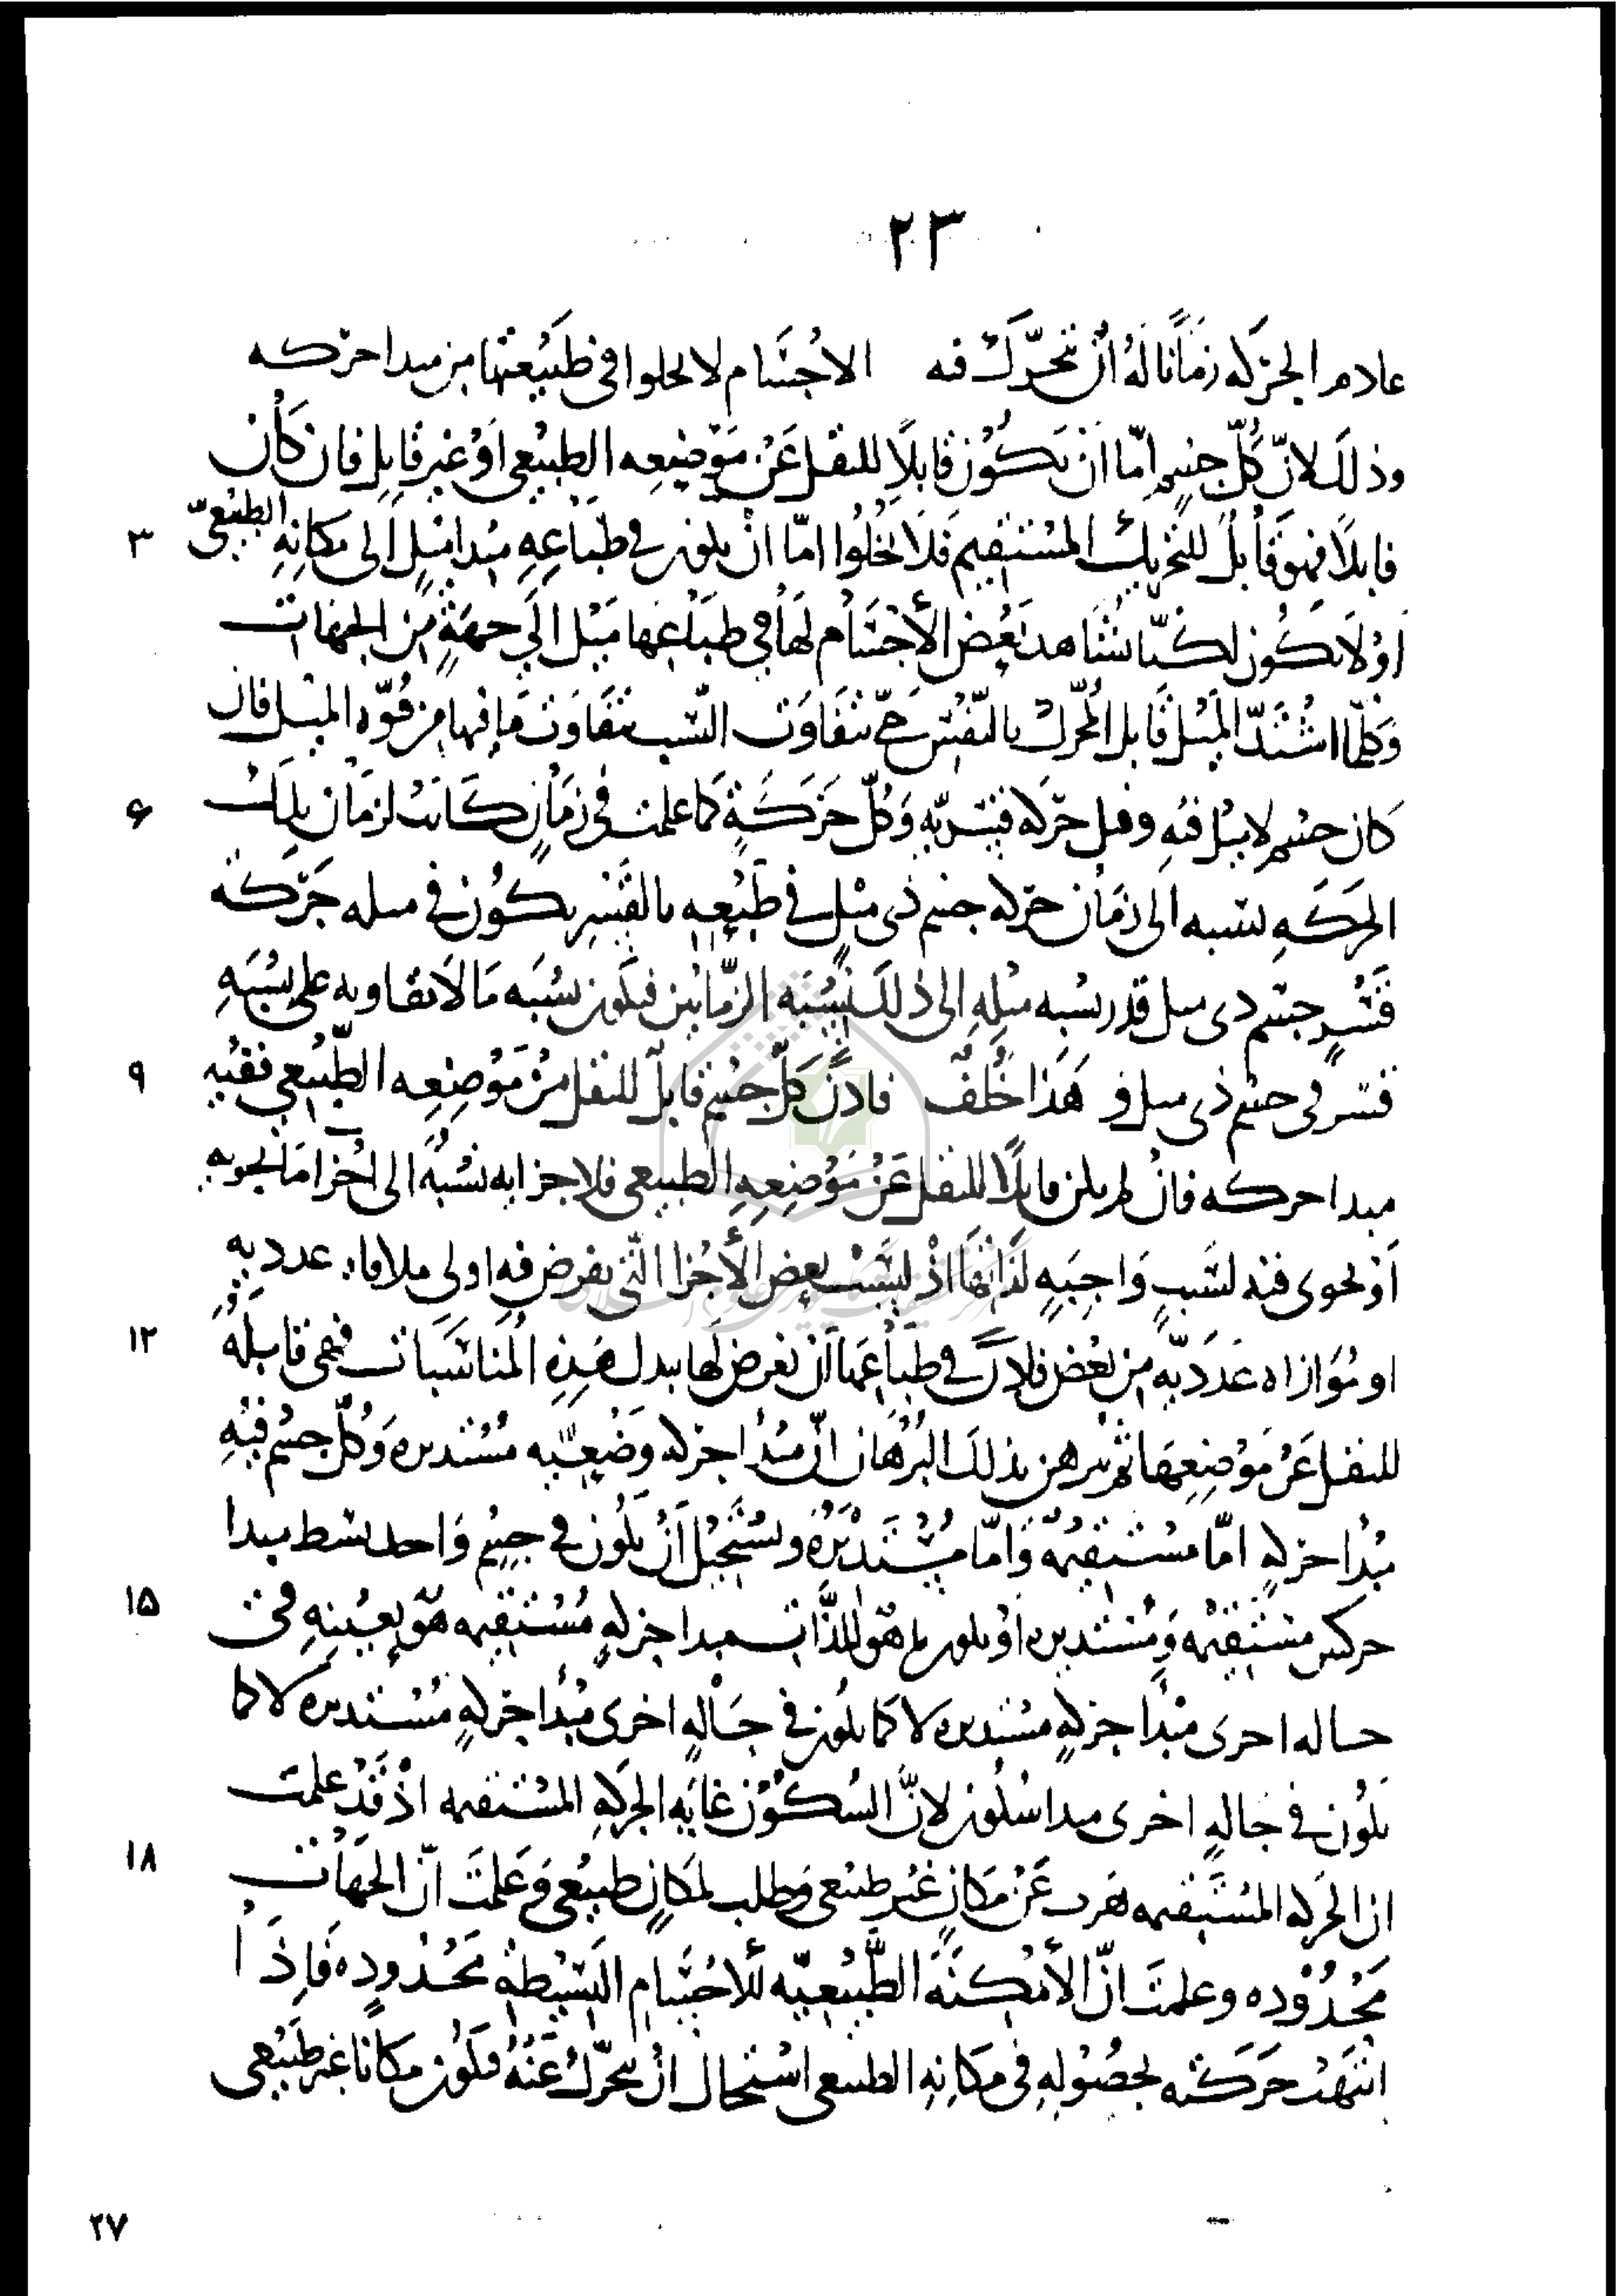 ٢٣
عادم الحركه زمانا له أن تحرّك فيه الاجسام لا يخلوا في طبيعتها من مبدا حركه
وذلك لانّ كلّ جسم امّا ان يكون قابلًا للنقل عن موضعه الطبيعي أو غير قابل فان كان
قابلًا فهو قابل للتحريك المستقيم فلا يخلوا امّا ان يكون في طباعه مبدا ميل الى مكانه الطبيعيّ
٣
او لا يكون لكنّا نشاهد بعض الأجسام لها في طباعها ميل الى جهةٍ من الجهات
وكلّما اشتدّ الميل قابل المحرّك بالقسر حتّى تتفاوت النسب بتفاوت ما فيها من قوّه الميل فان
كان جسم لا ميل فيه وقبل حركه قسريّه وكلّ حركةٍ كما علمت في زمانٍ كانت لزمان تلك
٦
الحركه نسبه الى زمان حركه جسم ذى ميل في طبعه بالقسر يكون في مثله حركه
قسر جسم ذى ميل قدر نسبه ميله الى ذلك نسبه الزمانين فيكون نسبه ما لا تقاوبه على نسبه
قسر في جسم ذى ميل و هذا خلف فاذن كلّ جسم قابل للنقل من موضعه الطبيعي ففيه
٩
مبدا حركه فان لم يكن قابلًا للنقل عن موضعه الطبيعي فلاجزايه نسبه الى اجزا ما يحويه
أو يحوى فيه ليست واجبه لذاتها اذ ليست بعض الأجزا التى يفرض فيه اولى بملاقاه عدديه
او موازاه عدديّه من بعض فلاذن في طباعها ان يعرض لها بدل هذه المناسبات فهي قابله
١٢
للنقل عن موضعها ثم يبرهن بذلك البرهان انّ مبدأ حركه وضعيّه مستديره وكلّ جسم فيه
مبدأ حركه امّا مستقيمه وامّا مستديره ويستحيل أن يكون في جسم واحد بسيط مبدا
حركتين مستقيمه ومستديره أو يكون ما هو للذات مبدا حركه مستقيمه هو بعينه في
١٥
حاله احرى مبدأ حركه مستديره لا كما يكون في حاله اخرى مبدأ حركه مستديره لا كما
يكون في حاله اخرى مبدا سكون لانّ السكون غايه الحركه المستقيمه اذ قد علمت
ان الحركه المستقيمه هرب عن مكان غير طبيعي وطلب لمكان طبيعي وعلمت أنّ الجهات
١٨
محدوده وعلمت انّ الأمكنه الطّبيعيّه للأجسام البسيطه محدوده فاذا
انتهت حركته بحصوله في مكانه الطبيعي استحال أن يتحرّك عنه فيكون مكانا غير طبيعي
٢٧